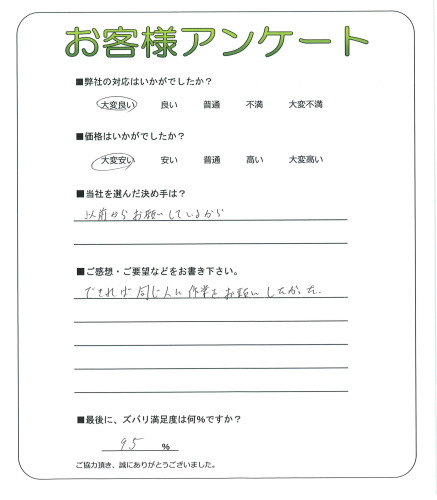 お客様アンケート
■弊社の対応はいかがでしたか？
大変良い 良い 普通 不満 大変不満
■価格はいかがでしたか？
大変安い 安い 普通 高い 大変高い
■当社を選んだ決め手は？
以前からお願いしているから
■ご感想・ご要望などをお書き下さい。
できれば同じ人に作業をお願いしたかった.
■最後に、ズバリ満足度は何%ですか？
95 %
ご協力頂き、誠にありがとうございました。